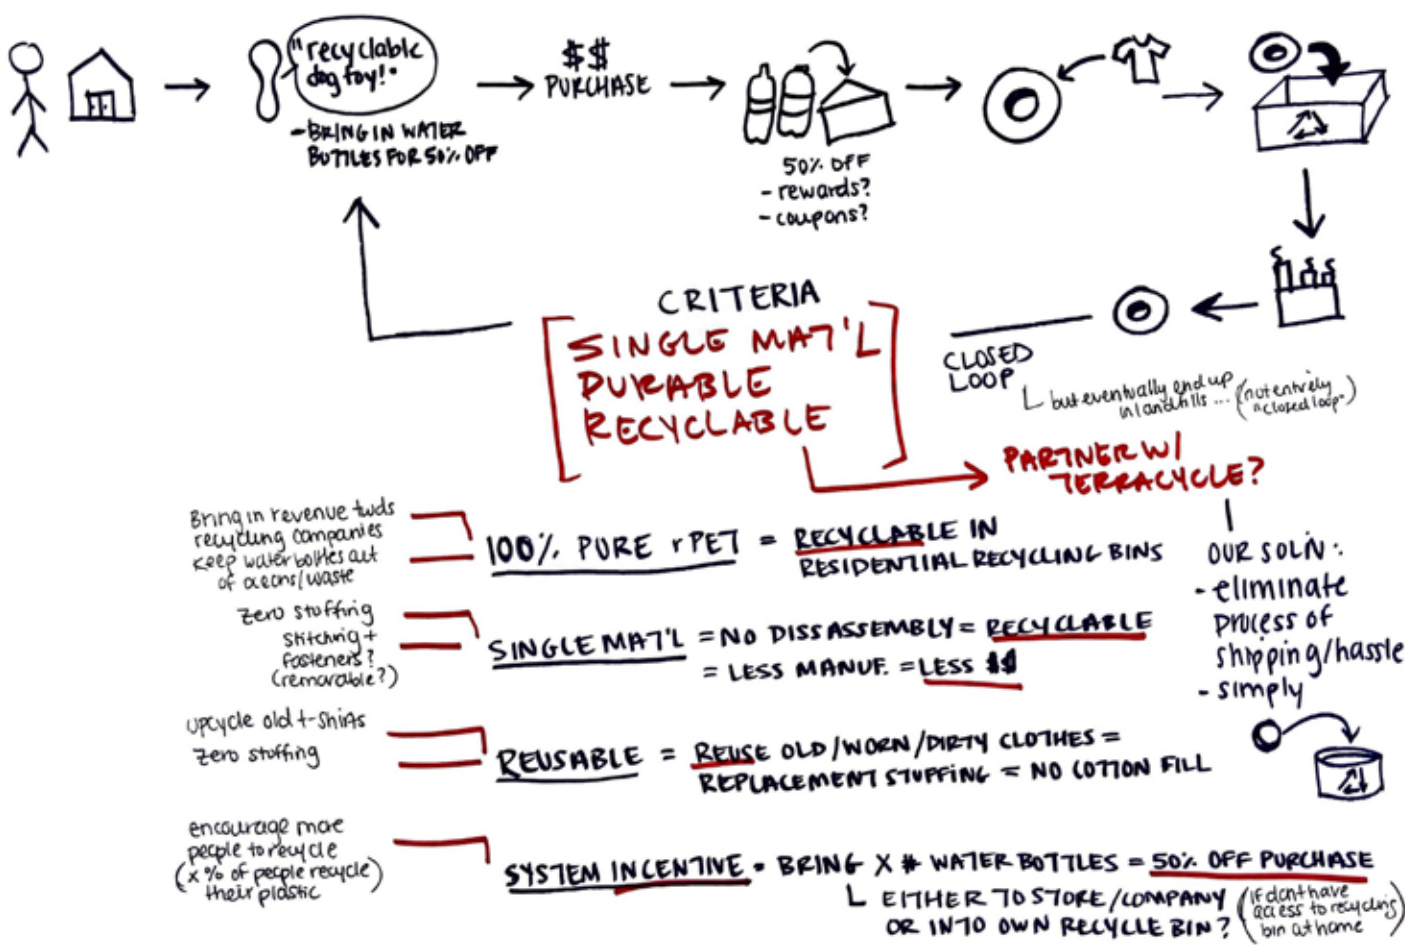 "recyclable
dog toy!"
- BRING IN WATER
BOTTLES FOR 50% OFF
$$
PURCHASE
50% OFF
- rewards?
- coupons?
CRITERIA
SINGLE MAT'L
DURABLE
RECYCLABLE
CLOSED
LOOP
but eventually end up
in landfills ... (not entirely
"closed loop")
PARTNER W/
TERRACYCLE?
Bring in revenue twds
recycling companies
Keep water bottles out
of oceans/waste
100% PURE rPET = RECYCLABLE IN
RESIDENTIAL RECYCLING BINS
OUR SOL'N:
- eliminate
process of
shipping/hassle
- simply
Zero stuffing
Stitching +
fasteners?
(removable?)
SINGLE MAT'L = NO DISSASSEMBLY = RECYCLABLE
= LESS MANUF. = LESS $$
upcycle old t-shirts
Zero stuffing
REUSABLE = REUSE OLD/WORN/DIRTY CLOTHES =
REPLACEMENT STUFFING = NO COTTON FILL
encourage more
people to recycle
(x % of people recycle
their plastic)
SYSTEM INCENTIVE • BRING X # WATER BOTTLES = 50% OFF PURCHASE
EITHER TO STORE/COMPANY
OR INTO OWN RECYCLE BIN?
(if dont have
access to recycling
bin at home)